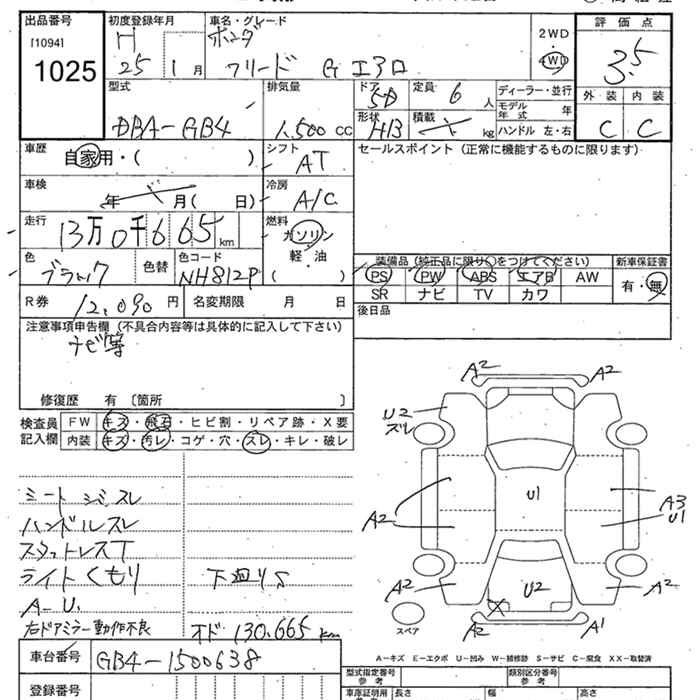 出品番号
[1094]
1025
初度登録年月
H
25 1月
車名・グレード
ホンダ
フリード G エアロ
2WD
4WD
評価点
3.5
外装 内装
C C
型式
DBA-GB4
排気量
1,500 CC
ドア 5D
形状 HB
定員 6 人
積載 kg
ディーラー・並行
モデル年式 年
ハンドル 左・右
車歴
自家用・( )
シフト
AT
セールスポイント (正常に機能するものに限ります)
車検
年 月( 日)
冷房
A/C
走行
13万0千665 km
燃料
ガソリン
軽・油
( )
色
ブラック
色替
色コード
NH812P
装備品 (純正品に限り○をつけてください)
PS PW ABS エアB AW
SR ナビ TV カワ
新車保証書
有・無
R券 12,090 円
名変期限 月 日
後日品
注意事項申告欄 (不具合内容等は具体的に記入して下さい)
ナビ等
修復歴 有 〔箇所 〕
検査員
記入欄
FW キズ・飛石・ヒビ割・リペア跡・X要
内装 キズ・汚レ・コゲ・穴・スレ・キレ・破レ
シート シミ スレ
ハンドルスレ
スタットレスT
ライトくもり 下廻りS
A-U.
右ドアミラー動作不良 オド 130,665 km
A2 A2
U2
スレ
U1
A2
A3
U1
A2 U2 A2
X
A2 A1
スペア
A-キズ E-エクボ U-凹み W-補修跡 S-サビ C-腐食 XX-取替済
車台番号 GB4-1500638
登録番号
型式指定番号
参考
類別区分番号
参考
車庫証明用
長さ 幅 高さ